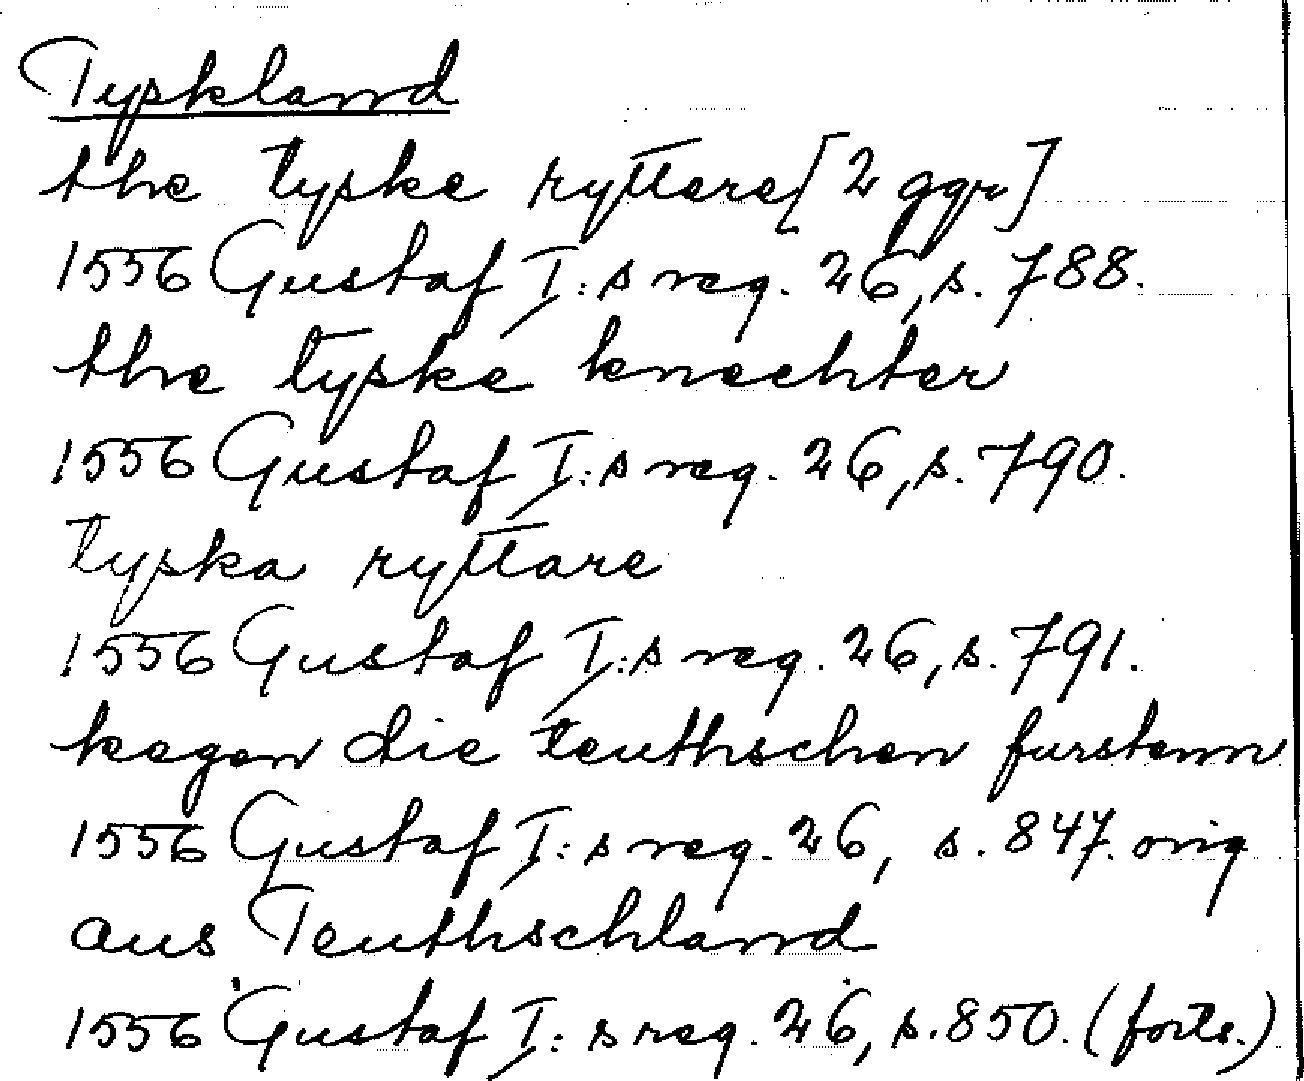 Tyskland
the tyske ryttere [2 ggr]
1556 Gustaf I:s reg. 26, s. 788.
the tyske knechter
1556 Gustaf I:s reg. 26, s. 790.
tyska ryttare
1556 Gustaf I:s reg. 26, s. 791.
kegen die teuthschen furstenn
1556 Gustaf I:s reg. 26, s. 847. orig
aus Teuthschland
1556 Gustaf I:s reg. 26, s. 850. (forts.)